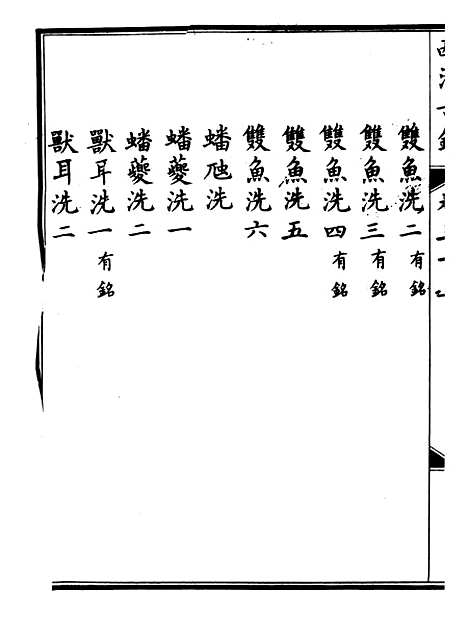 雙魚洗二 有銘
雙魚洗三 有銘
雙魚洗四 有銘
雙魚洗五
雙魚洗六
蟠虺洗
蟠夔洗一
蟠夔洗二
獸耳洗一 有銘
獸耳洗二